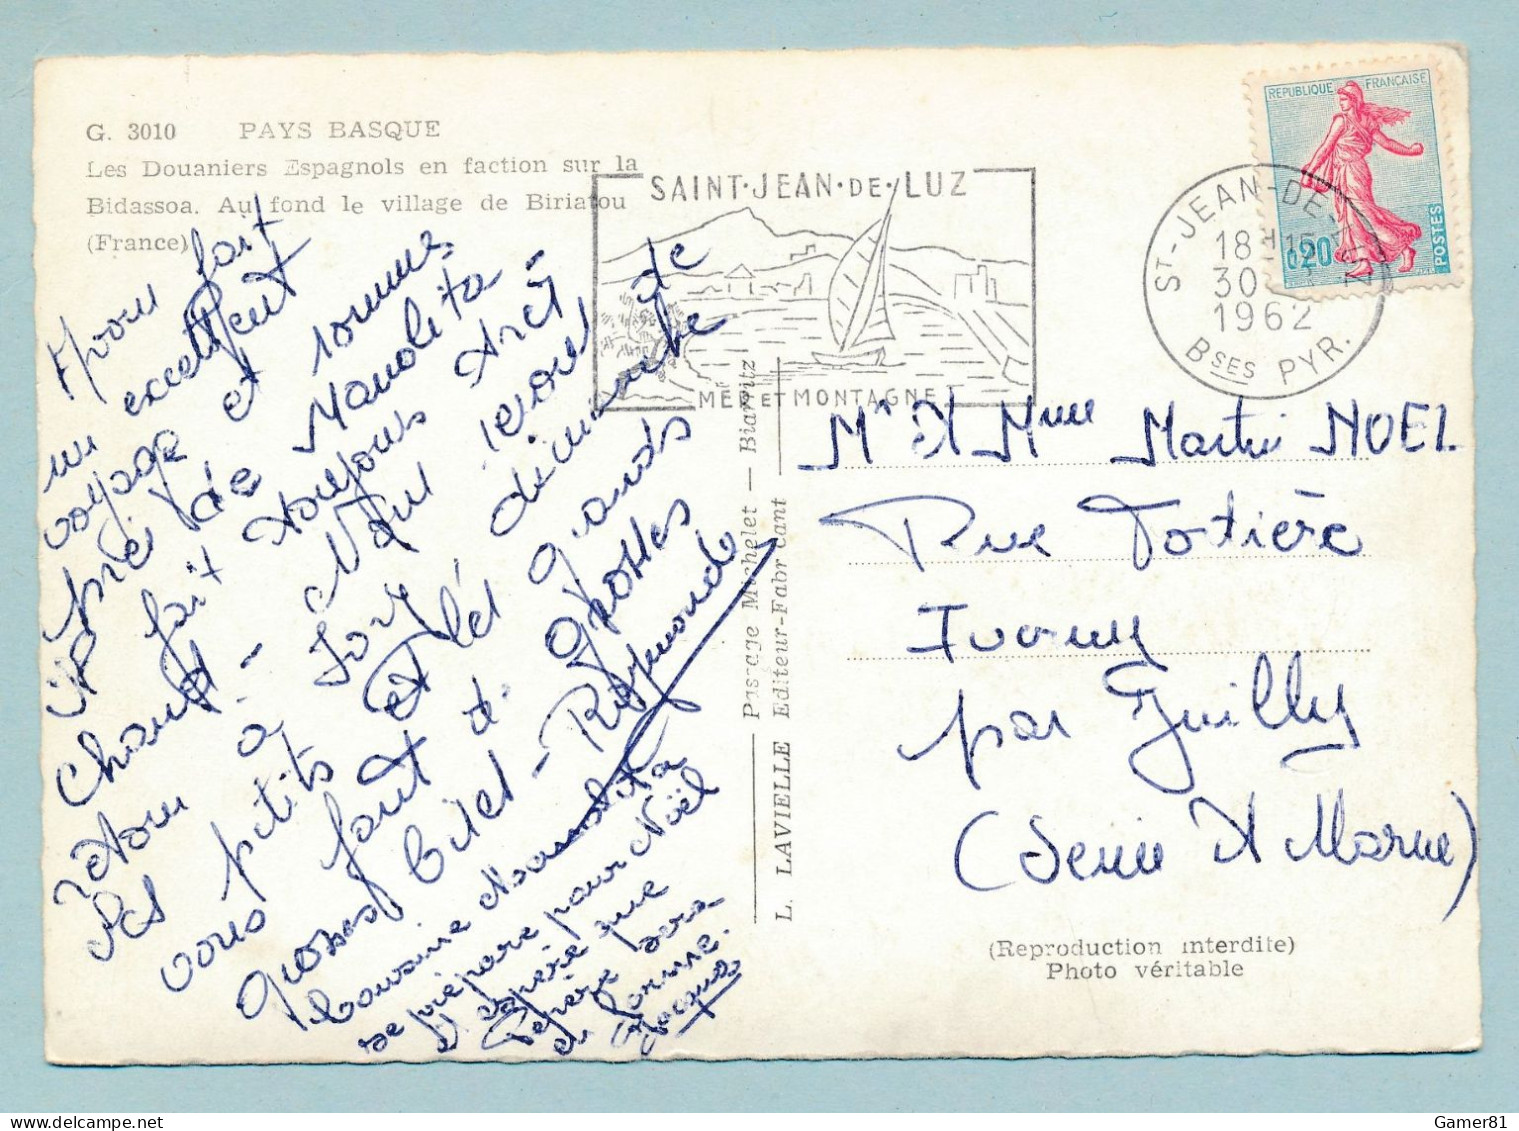 G. 3010 PAYS BASQUE
Les Douaniers Espagnols en faction sur la
Bidassoa. Au fond le village de Biriatou
(France)
Avons fait
un excellent
voyage et sommes
près de Manolita
il fait toujours très
chaud - Nous serons de
retour à Ivry dimanche
Les petits et les grands
vous font de grosses
grosses bises - Raymonde
Cousine Manolita
se prépare pour Noël
J'espère que
Pépère sera
en forme.
Jacques
SAINT·JEAN·DE·LUZ
MER ET MONTAGNE
ST-JEAN-DE-LUZ
18H15
30
1962
BSES PYR.
REPUBLIQUE FRANÇAISE
0,20
POSTES
Passage Michelet — Biarritz
L. LAVIELLE Editeur-Fabricant
Mr et Mme Martin NOEL
Rue Fortière
Iverny
par Juilly
(Seine et Marne)
(Reproduction interdite)
Photo véritable
Gamer81